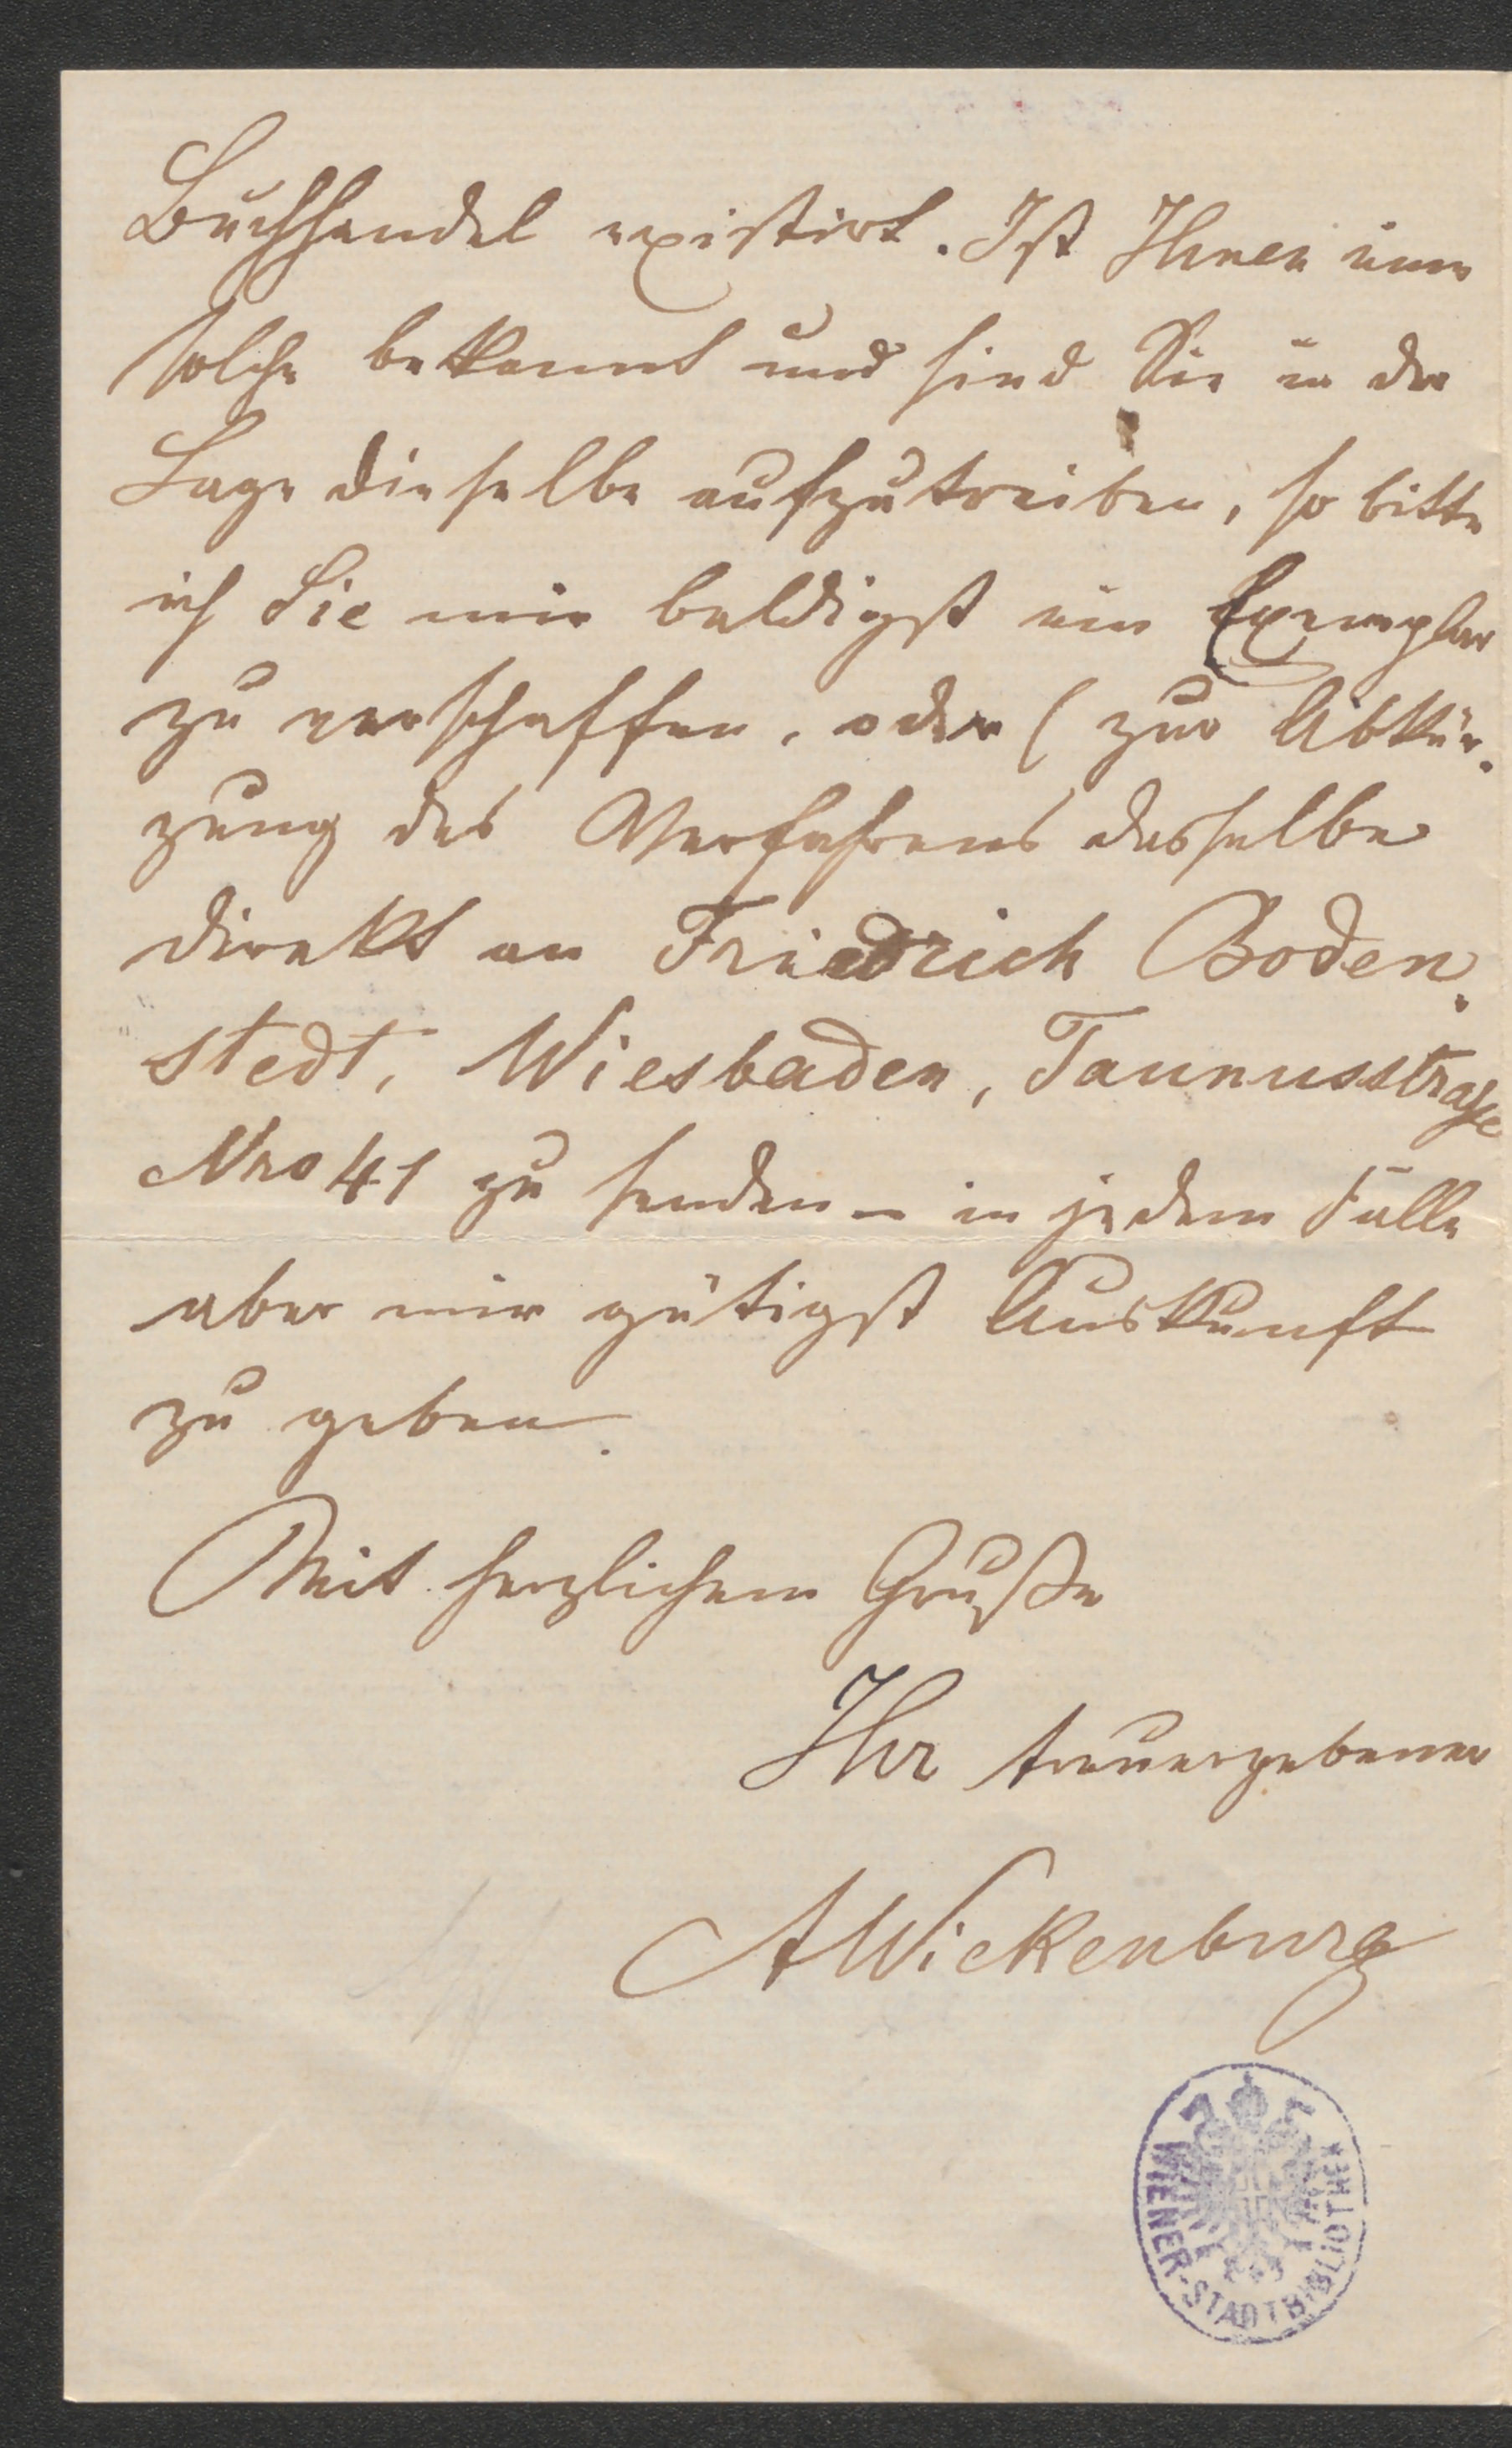 Buchhandel existirt. Ist Ihnen eine
solche bekannt und sind Sie in der
Lage dieselbe aufzutreiben, so bitte
ich Sie mir baldigst ein Exemplar
zu verschaffen, oder (zur Abkür-
zung des Verfahrens dasselbe
direkt an Friedrich Boden-
stedt, Wiesbaden, Taunusstraße
Nro 41 zu senden – in jedem Falle
aber mir gütigst Auskunft
zu geben.
Mit herzlichem Gruße
Ihr treuergebener
AWickenburg
WIENER-STADTBIBLIOTHEK